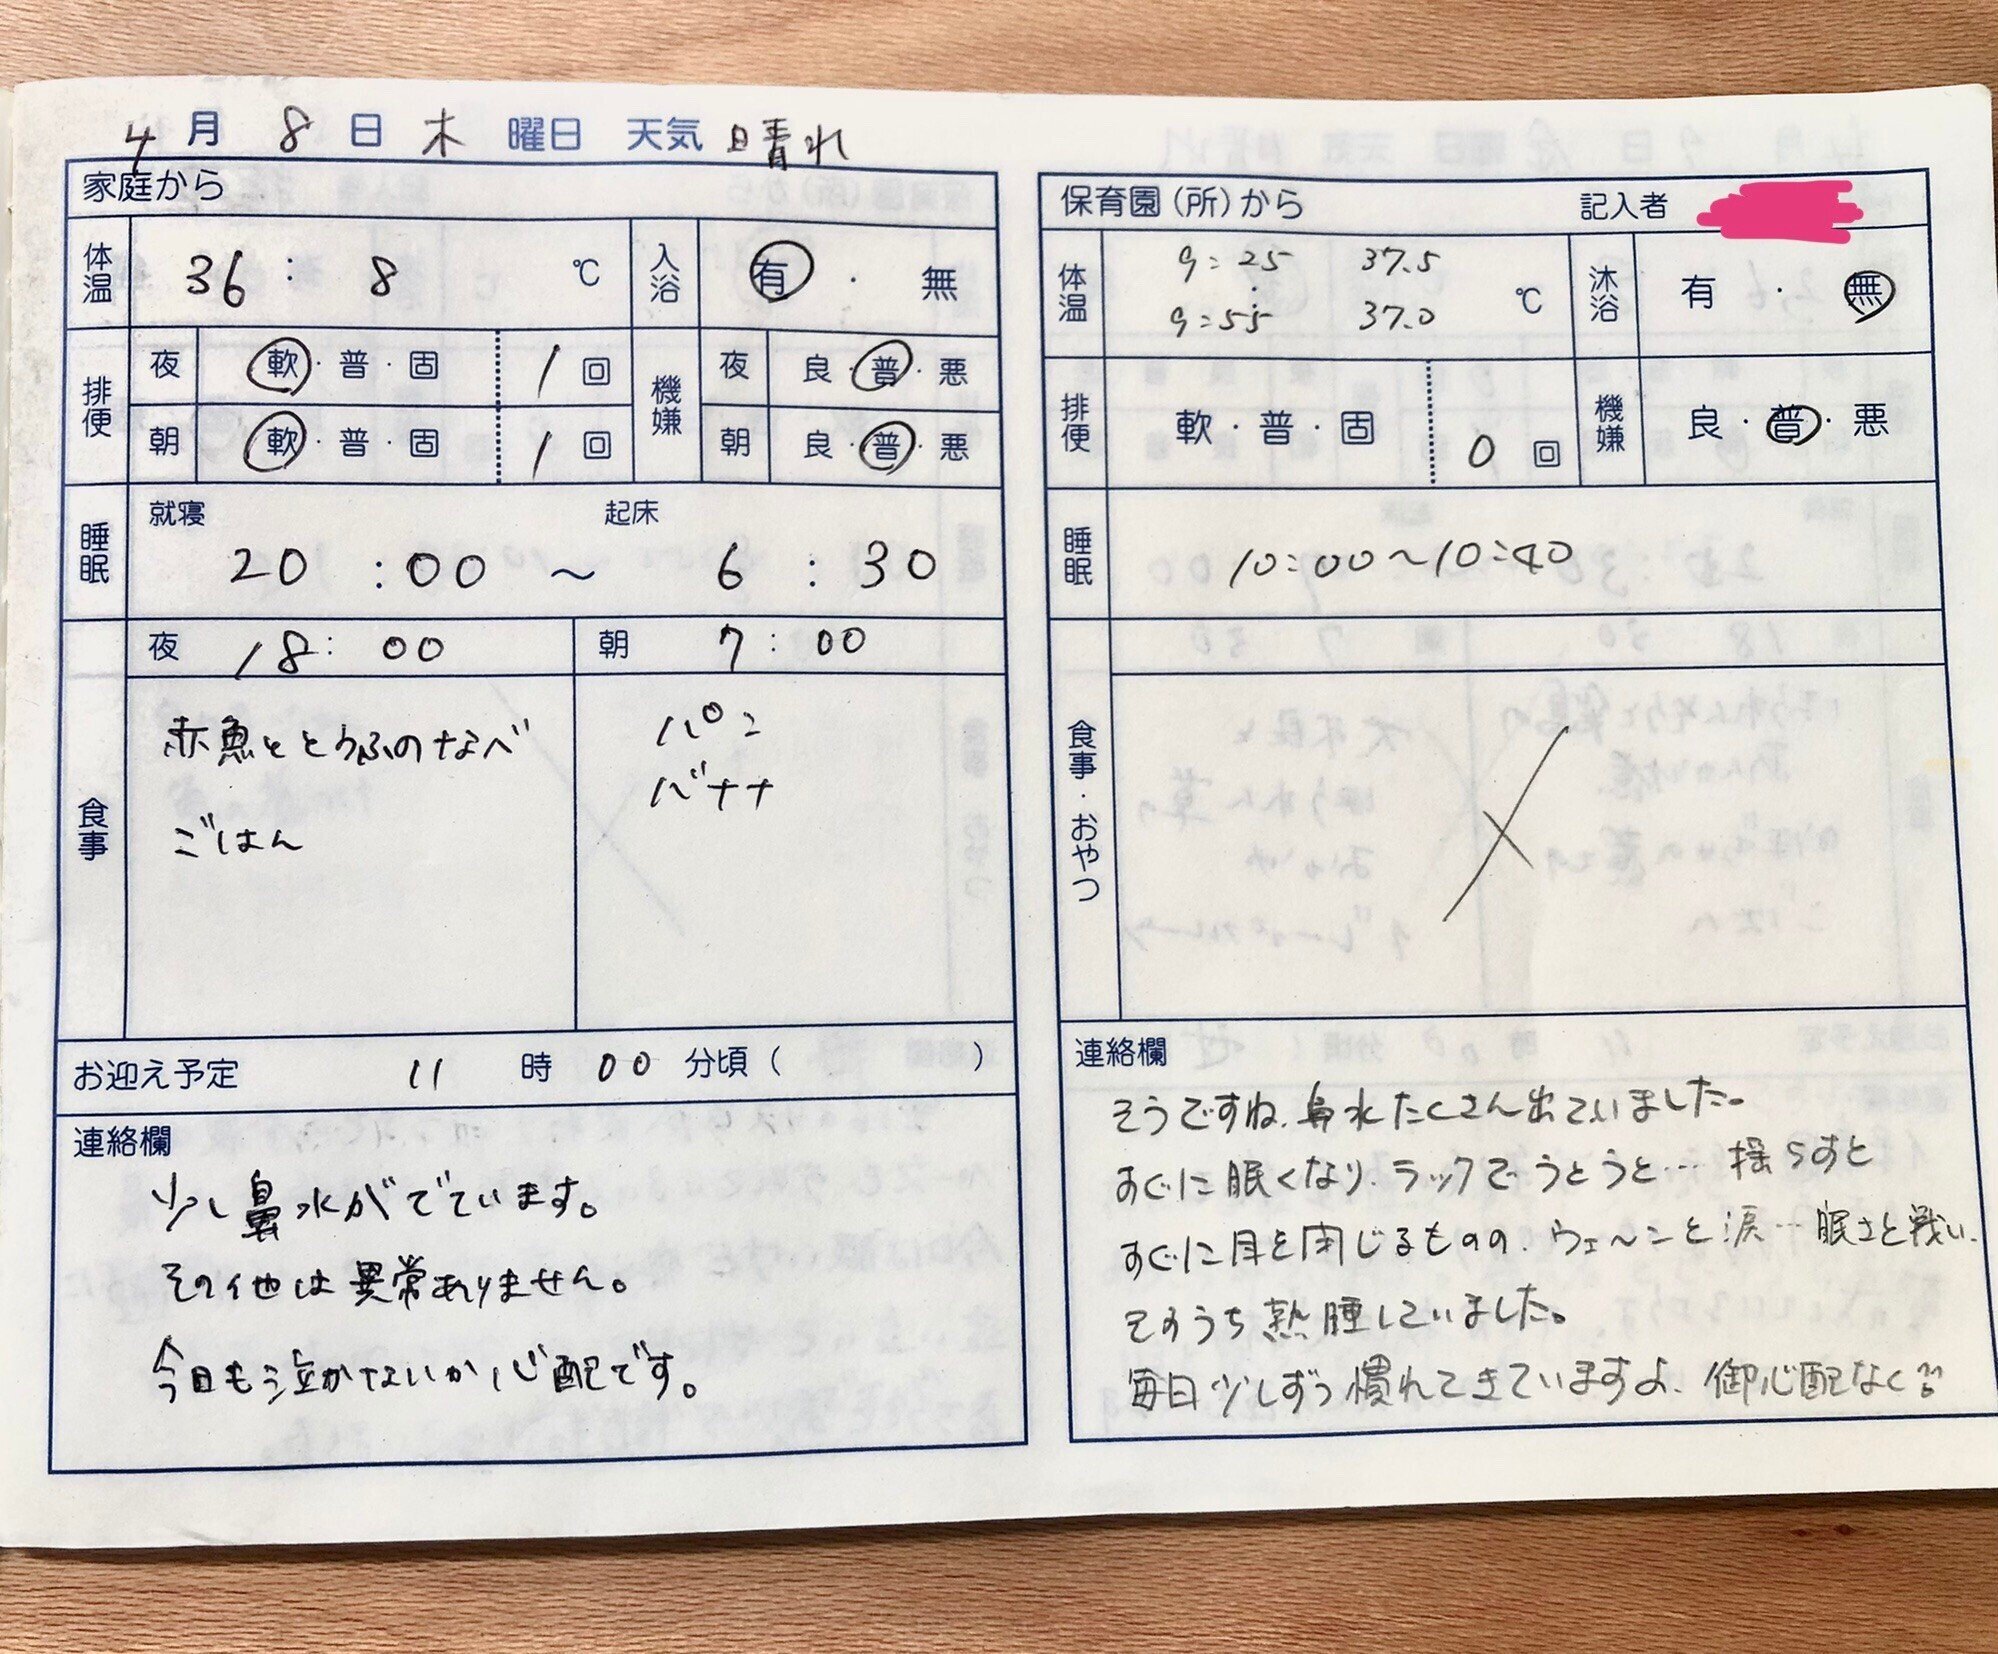 4月 8日 木曜日 天気 晴れ
家庭から
体温 36:8 ℃ 入浴 有・無
排便 夜 軟・普・固 1回 機嫌 夜 良・普・悪
朝 軟・普・固 1回 朝 良・普・悪
睡眠 就寝 起床
20:00 ～ 6:30
食事 夜 18:00 朝 7:00
赤魚ととうふのなべ パン
ごはん バナナ
お迎え予定 11時00分頃( )
連絡欄
少し鼻水がでています。
その他は異常ありません。
今日も泣かないか心配です。
保育園(所)から 記入者
体温 9:25 37.5 ℃ 沐浴 有・無
9:55 37.0
排便 軟・普・固 0回 機嫌 良・普・悪
睡眠 10:00～10:40
食事・おやつ
連絡欄
そうですね、鼻水たくさん出ていました。
すぐに眠くなり、ラックでうとうと… 揺らすと
すぐに目を閉じるものの、ウェ〜ンと涙… 眠さと戦い、
そのうち熟睡していました。
毎日少しずつ慣れてきていますよ、御心配なく